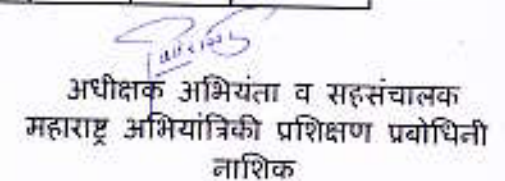 अधीक्षक अभियंता व सहसंचालक
महाराष्ट्र अभियांत्रिकी प्रशिक्षण प्रबोधिनी
नाशिक